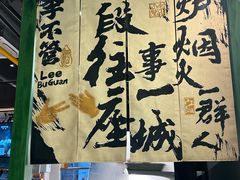 炉烟火一群人
段往事一座城
李不管
Lee
BuGuan